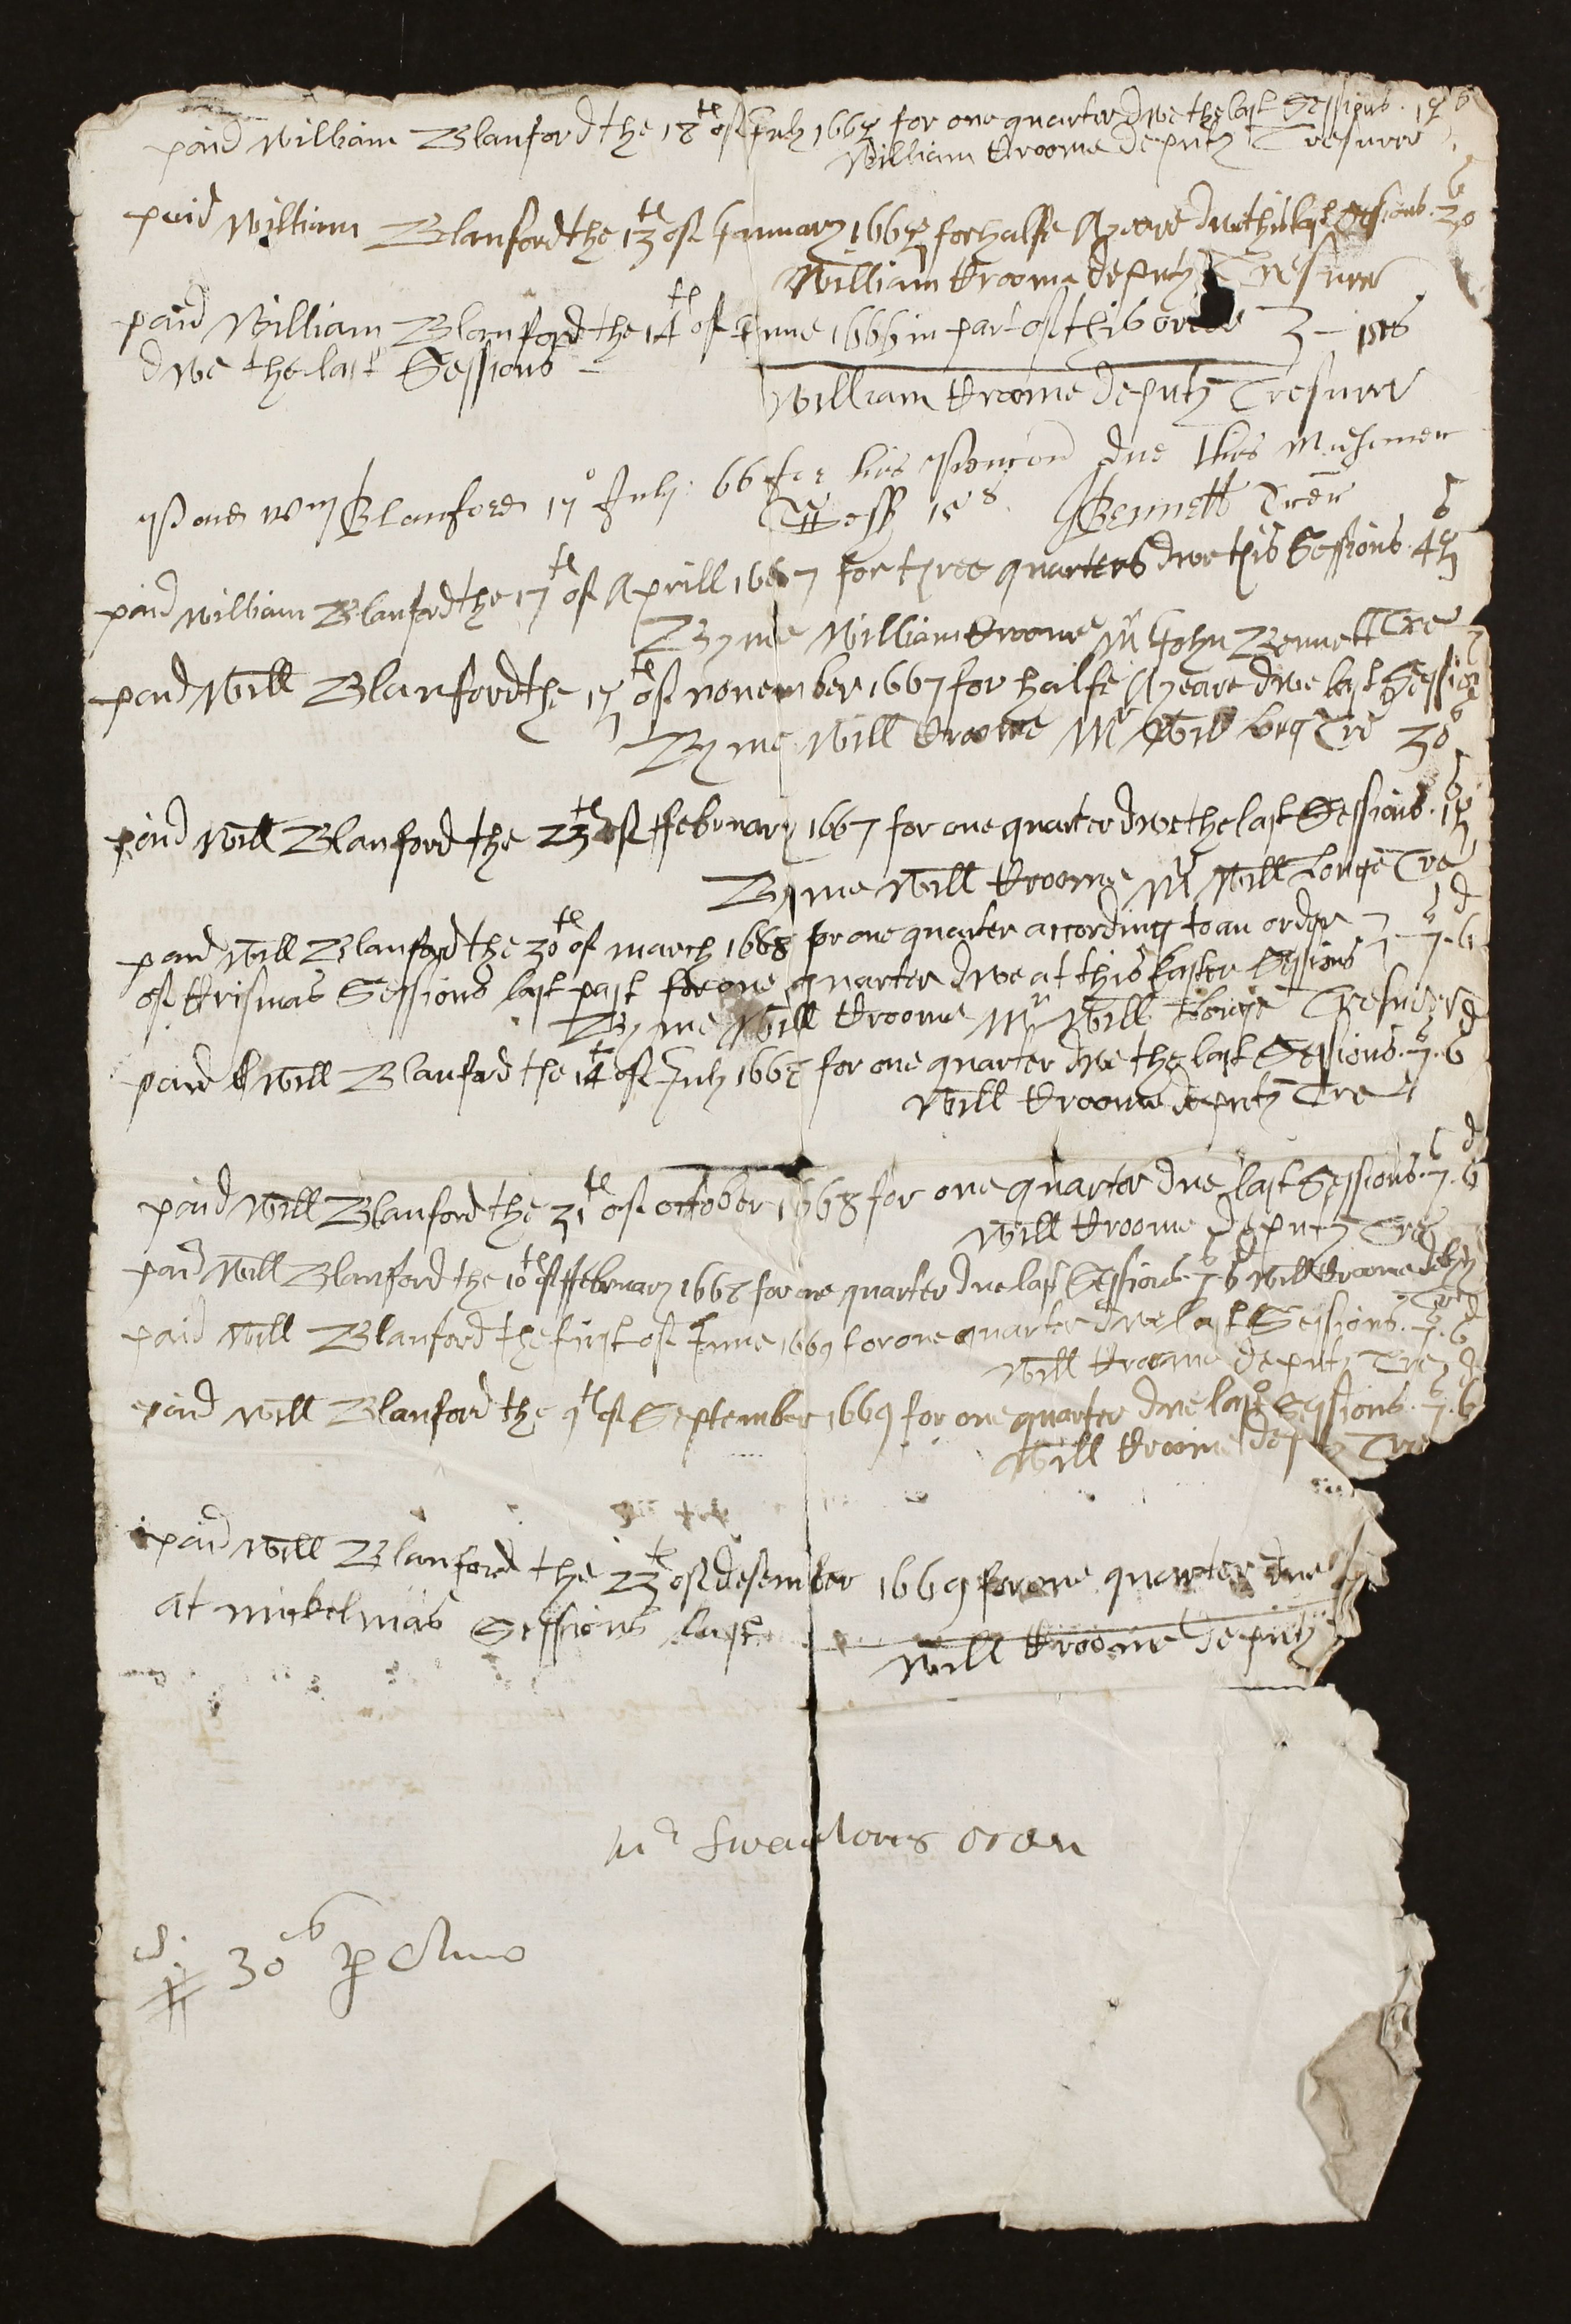 paid William Blanford the 18th of July 1665 for one quarter dwe the last Sessions. 15s
William Kroome deputy Tresurer
paid William Blanford the 13th of January 1665 for halfe A yeare dwe this last Sesions. 30s
William Kroome deputy Tresurer
paid William Blanford the 14th of June 1666 in part of this order
dwe the last Sessions
William Kroome deputy Tresurer
Wm Blanford 17o July: 66 for his due this
15s Bennett Trer
paid William Blanford the 17th of Aprill 1667 for three quarters dwe this Sessions. 45s
By me William Kroome Mr John Bennett Tre
paid Will Blanford the 15th of november 1667 for halfe A yeare dwe last Session
By me Will Kroome Mr Will Tre 30s
paid Will Blanford the 23th of ffebruary 1667 for one quarter dwe the last Sessions. 15s
By me Will Kroome Mr Will Longe Tre
paid Will Blanford the 30th of march 1668 for one quarter according to an order 7s-6d
of Krismas Sessions last past for one quarter dwe at this Easter Sessions
By me Will Kroome Mr Will Longe Tresurer
paid Will Blanford the 14th of July 1668 for one quarter dwe the last Sessions. 7s.6d
Will Kroome deputy Tre
paid Will Blanford the 31th of october 1668 for one quarter due last Sessions. 7s.6d
Will Kroome deputy Tre
paid Will Blanford the 10th of ffebruary 1668 for one quarter due last Sessions. 7s 6d Will Kroome debty
Tre
paid Will Blanford the first of June 1669 for one quarter dwe last Sessions. 7s.6d
Will Kroome deputy Tre
paid Will Blanford the 9th of September 1669 for one quarter dwe last Sessions. 7s.6d
Will Kroome deputy Tre
paid Will Blanford the 23th of desember 1669 for one quarter due
at mickelmas Sessions last
Will Kroome deputy
Mr Swantons
30s p Anno